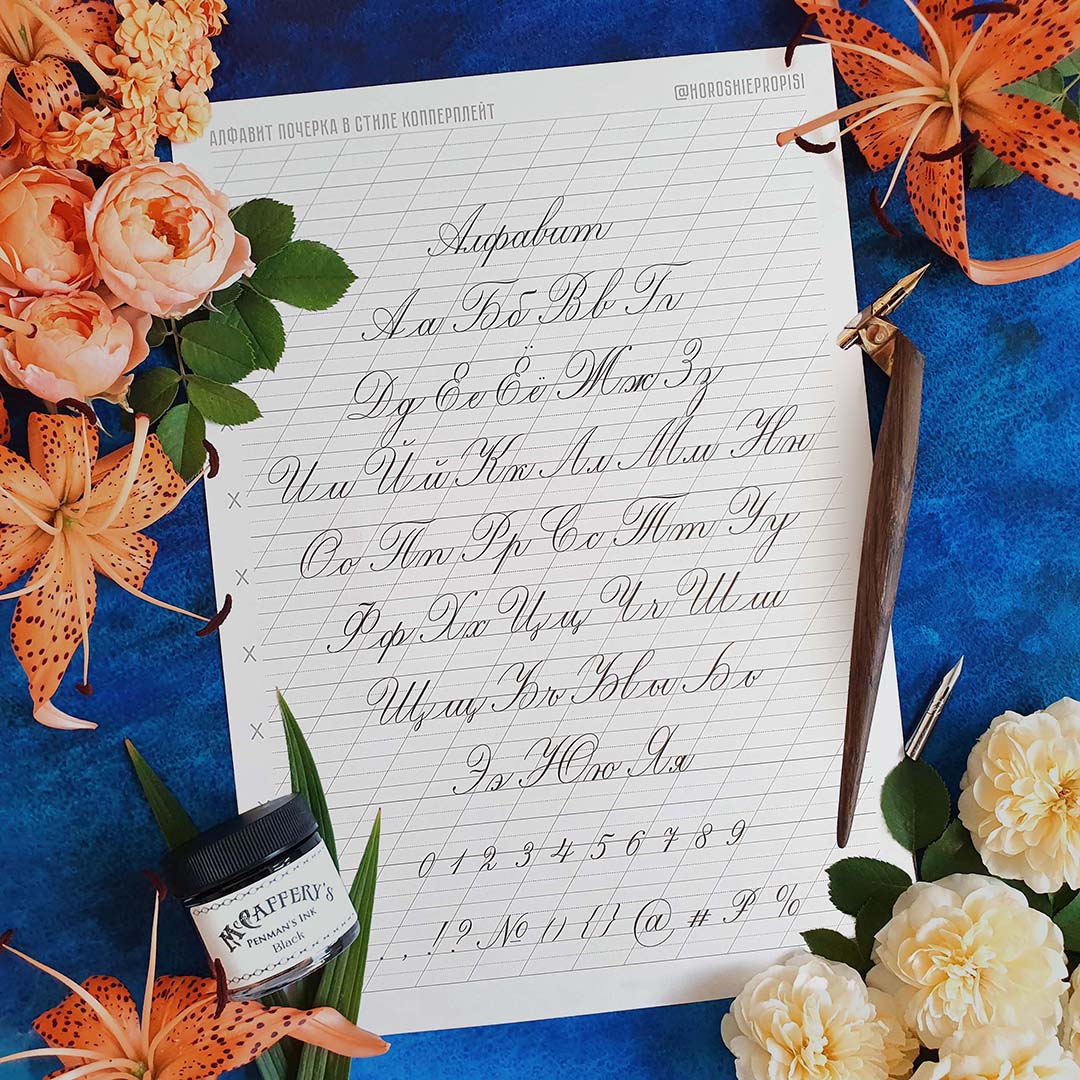 АЛФАВИТ ПОЧЕРКА В СТИЛЕ КОППЕРПЛЕЙТ
@HOROSHIEPROPISI
Алфавит
Аа Бб Вв Гг
Дд Ее Ёё Жж Зз
Ии Йй Кк Лл Мм Нн
Оо Пп Рр Сс Тт Уу
Фф Хх Цц Чч Шш
Щщ Ъъ Ыы Ьь
Ээ Юю Яя
0 1 2 3 4 5 6 7 8 9
. , ! ? № () {} @ # ₽ %
McCAFFERY'S
PENMAN'S INK
Black